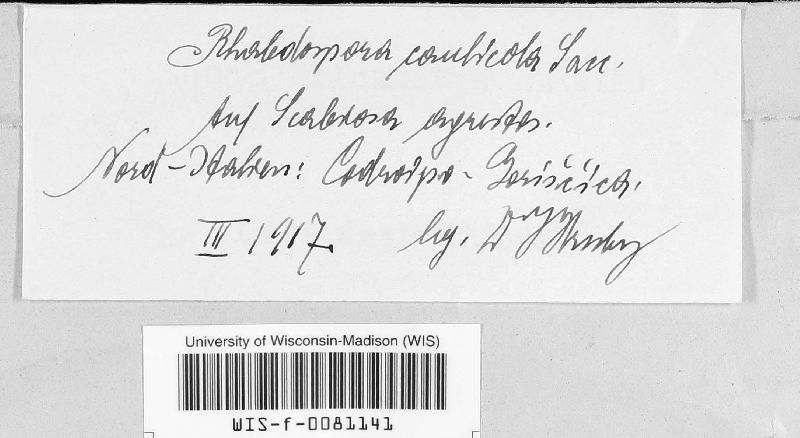 Rhabdospora caulicola Sacc.
Auf Scabiosa agrestis.
Nord-Italien: Codroipo - Goriščica.
III 1917. leg. Dr. J. Hruby
University of Wisconsin-Madison (WIS)
WIS-f-0081141